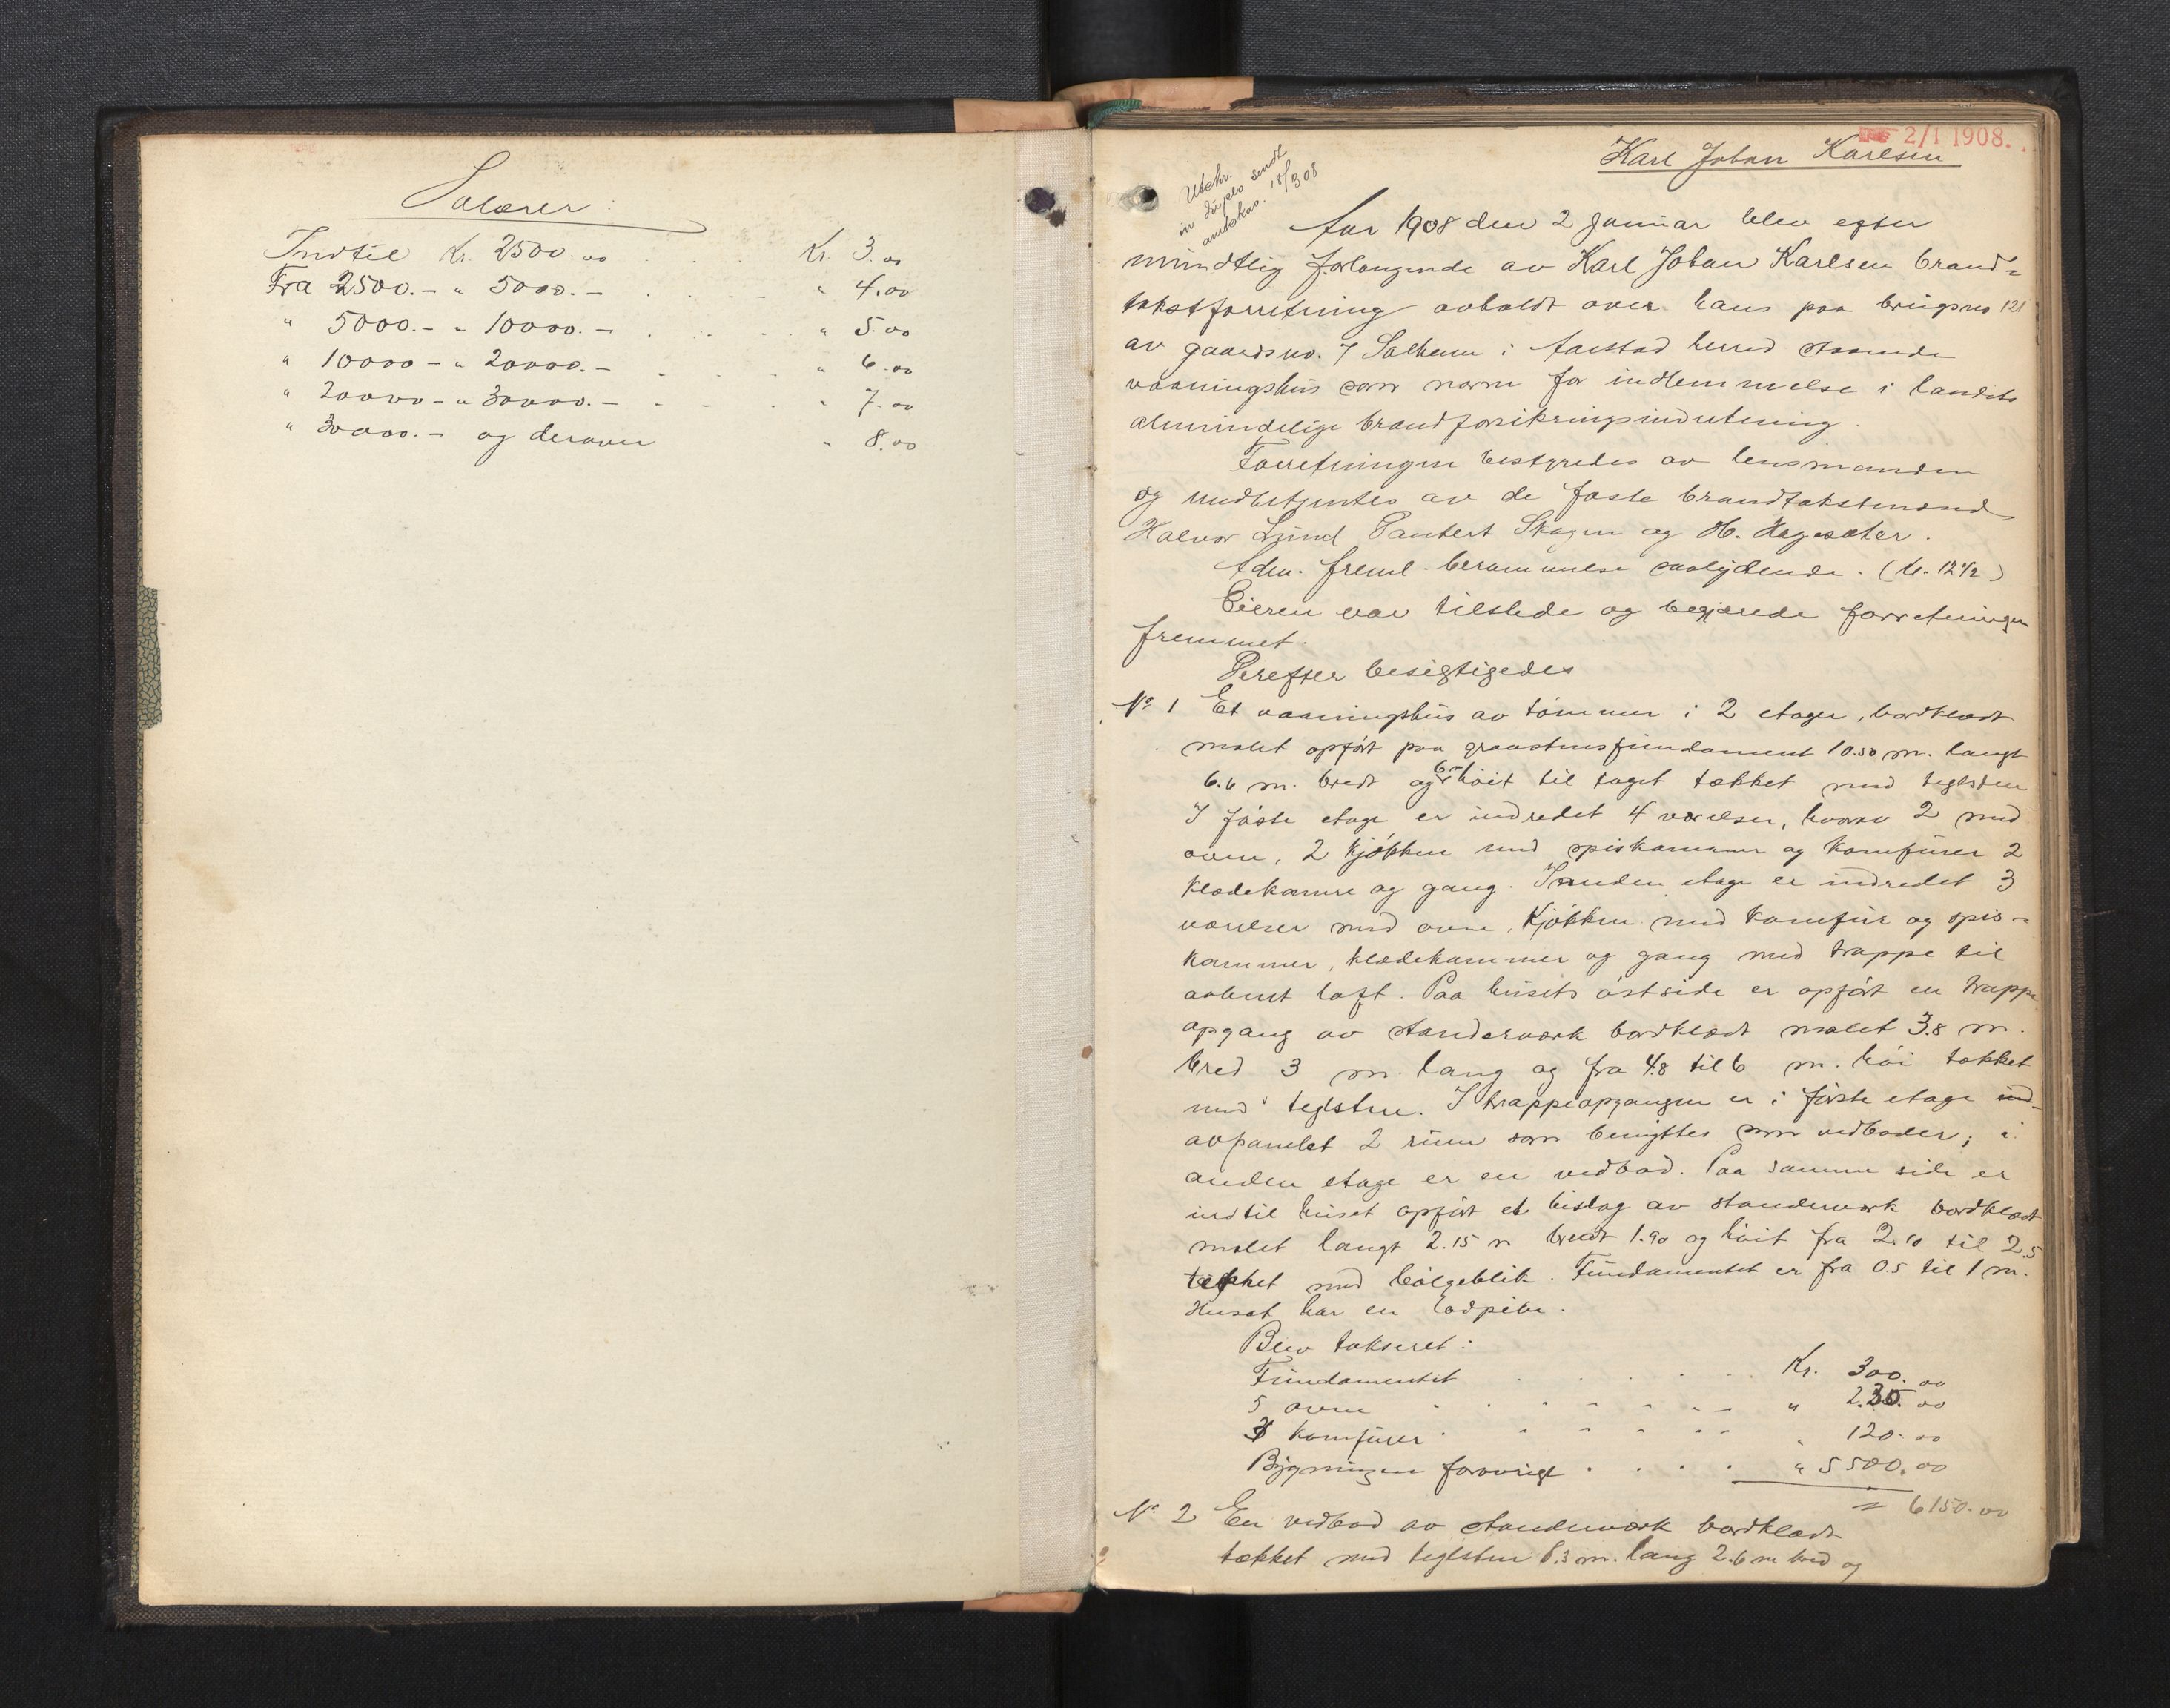 Salærer:
Indtil Kr. 2500.00 . . . Kr. 3.00
Fra 2500.- " 5000.- . . . . " 4.00
" 5000.- " 10000.- . . . . " 5.00
" 10000 - " 20000.- . . . " 6.00
" 20000 - " 30000.- . . . " 7.00
" 30000.- og derover " 8.00
2/1 1908.
Karl Johan Karlsen
Utskr.
in duplo sendt
amtskas. 18/3 08
Aar 1908 den 2 januar blev efter
mundtlig forlangende av Karl Johan Karlsen brand-
takstforretning avholdt over hans paa bruksno 121
av gaardsno. 7 Solheim i Aarstad herred staaende
vaaningshus som norm for indlemmelse i landets
almindelige brandforsikringsindretning.
Forretningen bestyredes av lensmanden
og medbetjentes av de faste brandtakstmænd
Halvor Lund Lambert Skagen og Ob. Hagesæter.
Adm. freml. berammelse saalydende. (Kr. 12 1/2)
Eieren var tilstede og begjærede forretningen
fremmet.
Derefter besigtigedes
No 1 Et vaaningshus av tømmer i 2 etager, bordklædt
malet opført paa graastensfundament 10.50 m. langt
6.6 m. bredt og 6 m høit til taget tækket med teglsten
I første etage er indredet 4 værelser, hvorav 2 med
ovne, 2 kjøkken med spiskammer og komfurer 2
klædekamre og gang. I anden etage er indredet 3
værelser med ovne, kjøkken med komfur og spis-
kammer, klædekammer og gang med trappe til
aabent loft. Paa husets østside er opført en trappe
opgang av standerværk bordklædt malet 3.8 m.
bred 3 m. lang og fra 4.8 til 6 m. høi tækket
med teglsten. I trappeopgangen er i første etage ind-
avpanelet 2 rum som benyttes som vedboder; i
anden etage er en vedbod. Paa samme side er
indtil huset opført et bislag av standerværk bordklædt
malet langt 2.15 m bredt 1.90 og høit fra 2.10 til 2.5
tækket med bølgeblik. Fundamentet er fra 0.5 til 1 m.
Huset har en lodpibe.
Blev takseret:
Fundamentet . . . . . Kr. 300.00
5 ovne . . . . . . " 230.00
3 komfurer . . . . . " 120.00
Bygningen forøvrigt . . . . " 5500.00
= 6150.00
No 2 En vedbod av standerværk bordklædt
tækket med teglsten 8.3 m. lang 2.6 m bred og